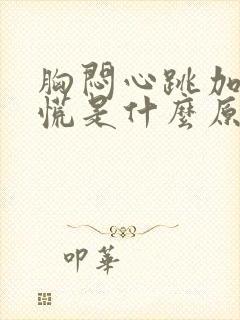 胸悶心跳加
慌是什麼原
叩華